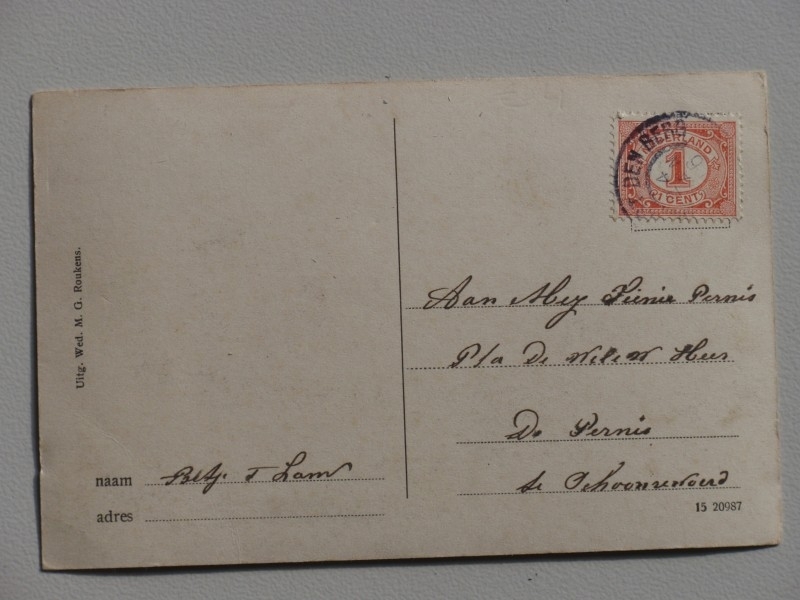 Uitg. Wed. M. G. Roukens.
naam Betje T Lam
adres
DEN BERG
NEDERLAND
1
1 CENT
Aan Mej Sienie Pernis
P/a De WelEW Heer
Ds Pernis
te Schoonrewoerd
15 20987